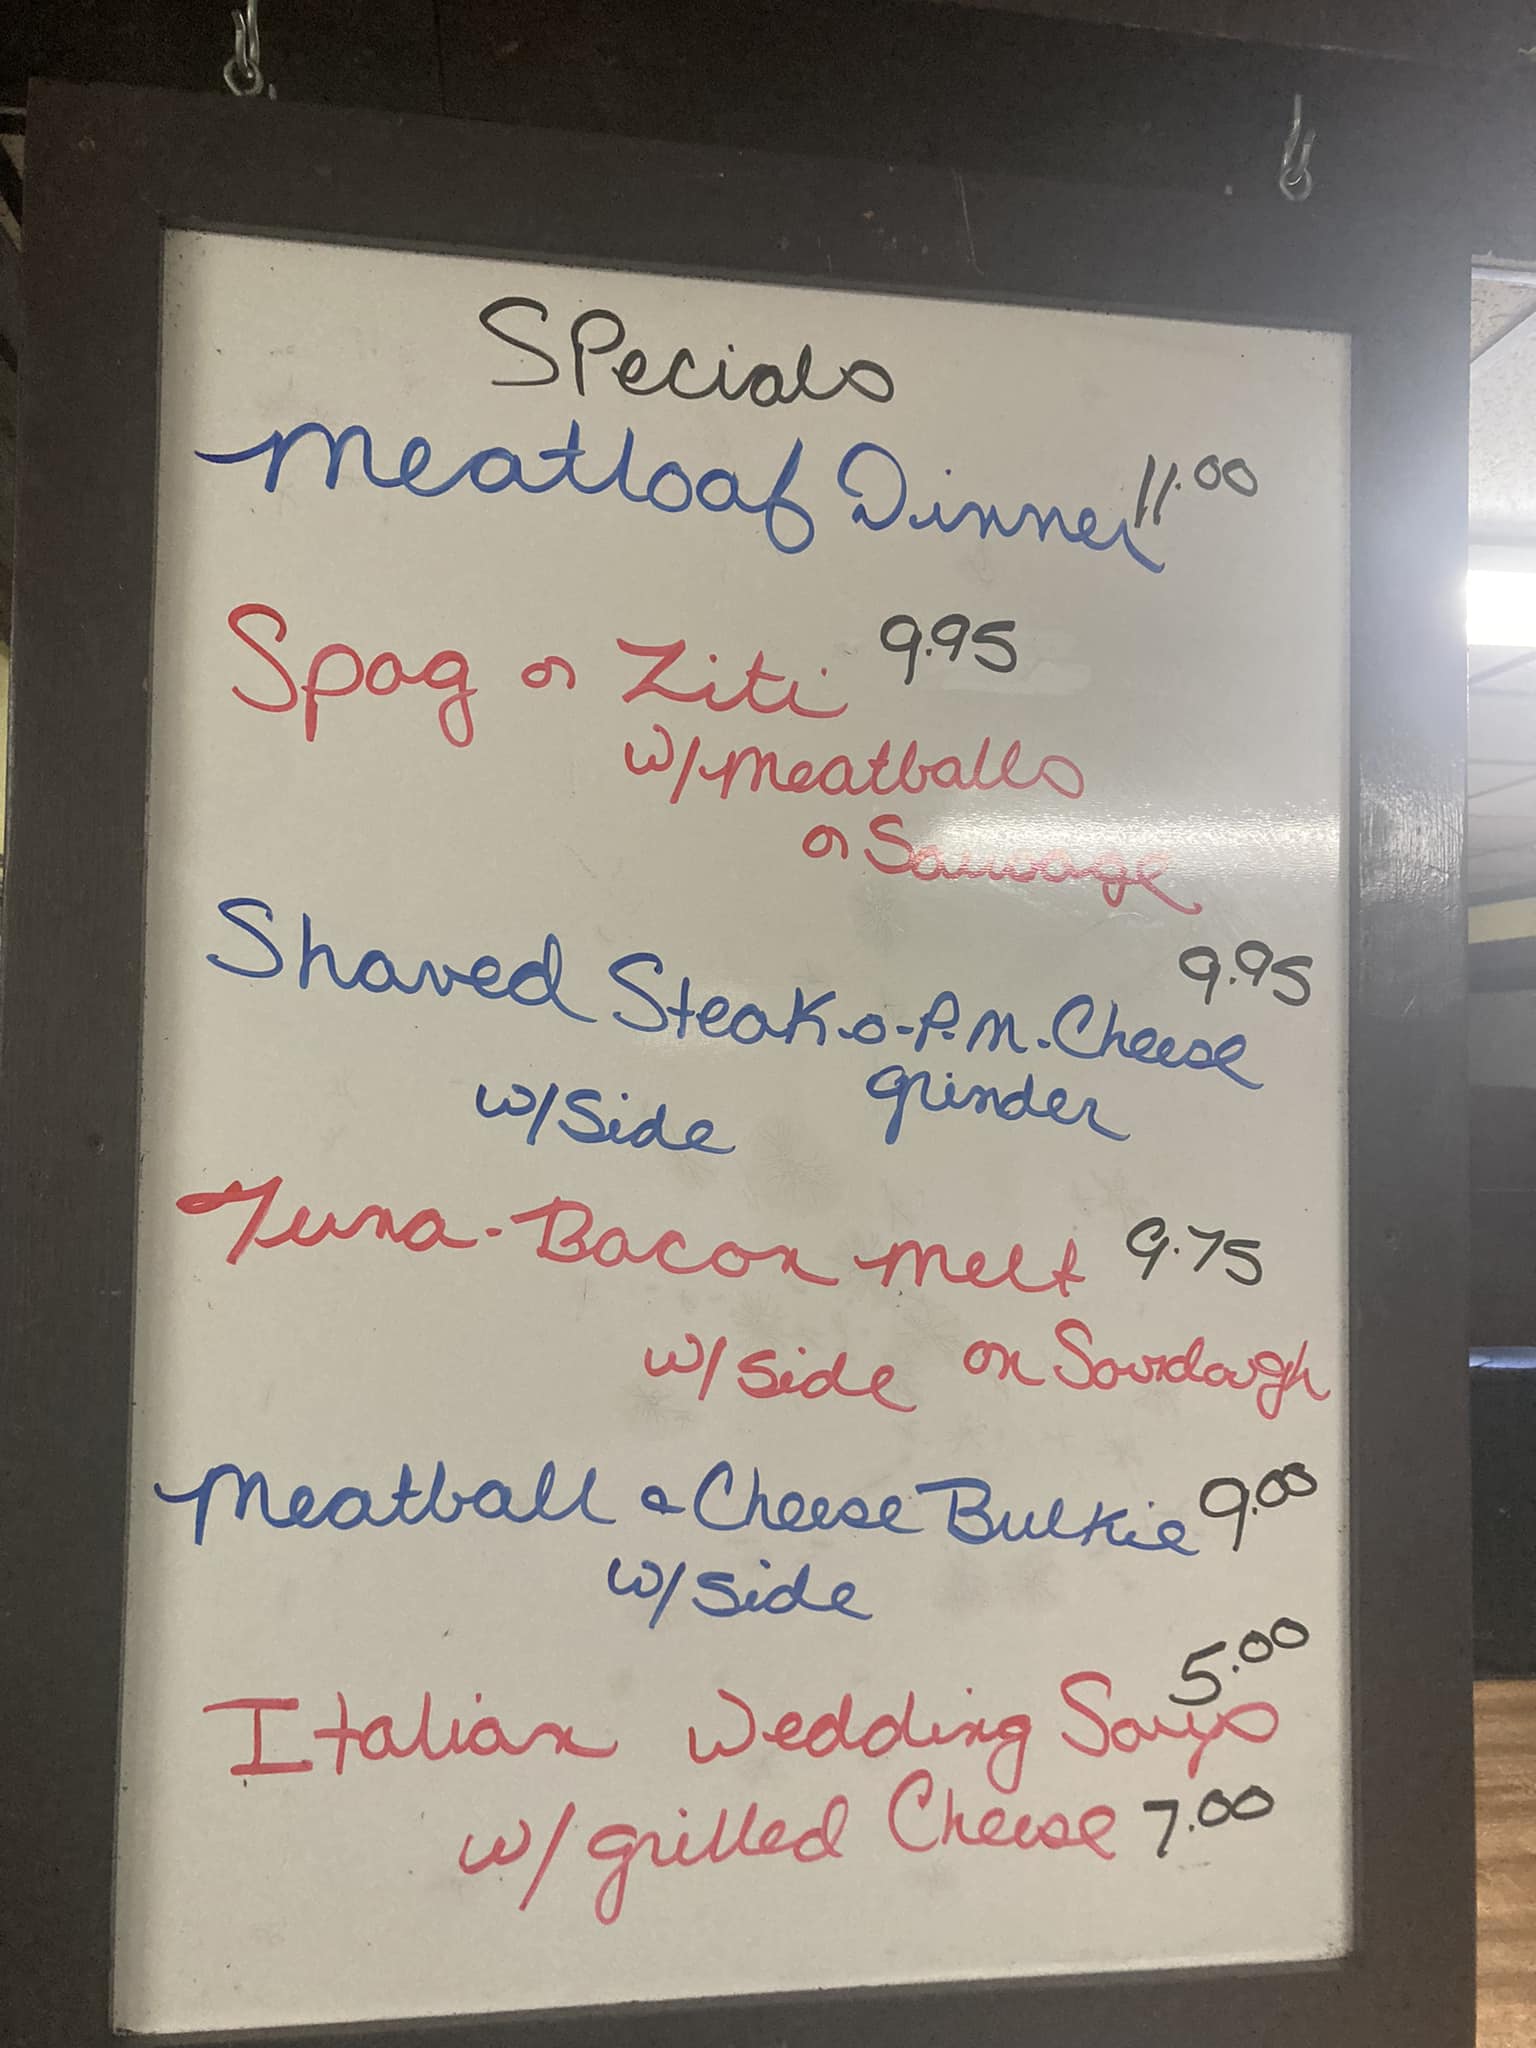 SPecials
Meatloaf Dinner 11.00
Spag or Ziti 9.95
w/ meatballs
or Sausage
9.95
Shaved Steak-o-P.M. Cheese
w/ Side grinder
Tuna-Bacon melt 9.75
w/ side on Sourdough
Meatball & Cheese Bulkie 9.00
w/ side
5.00
Italian Wedding Soup
w/ grilled Cheese 7.00